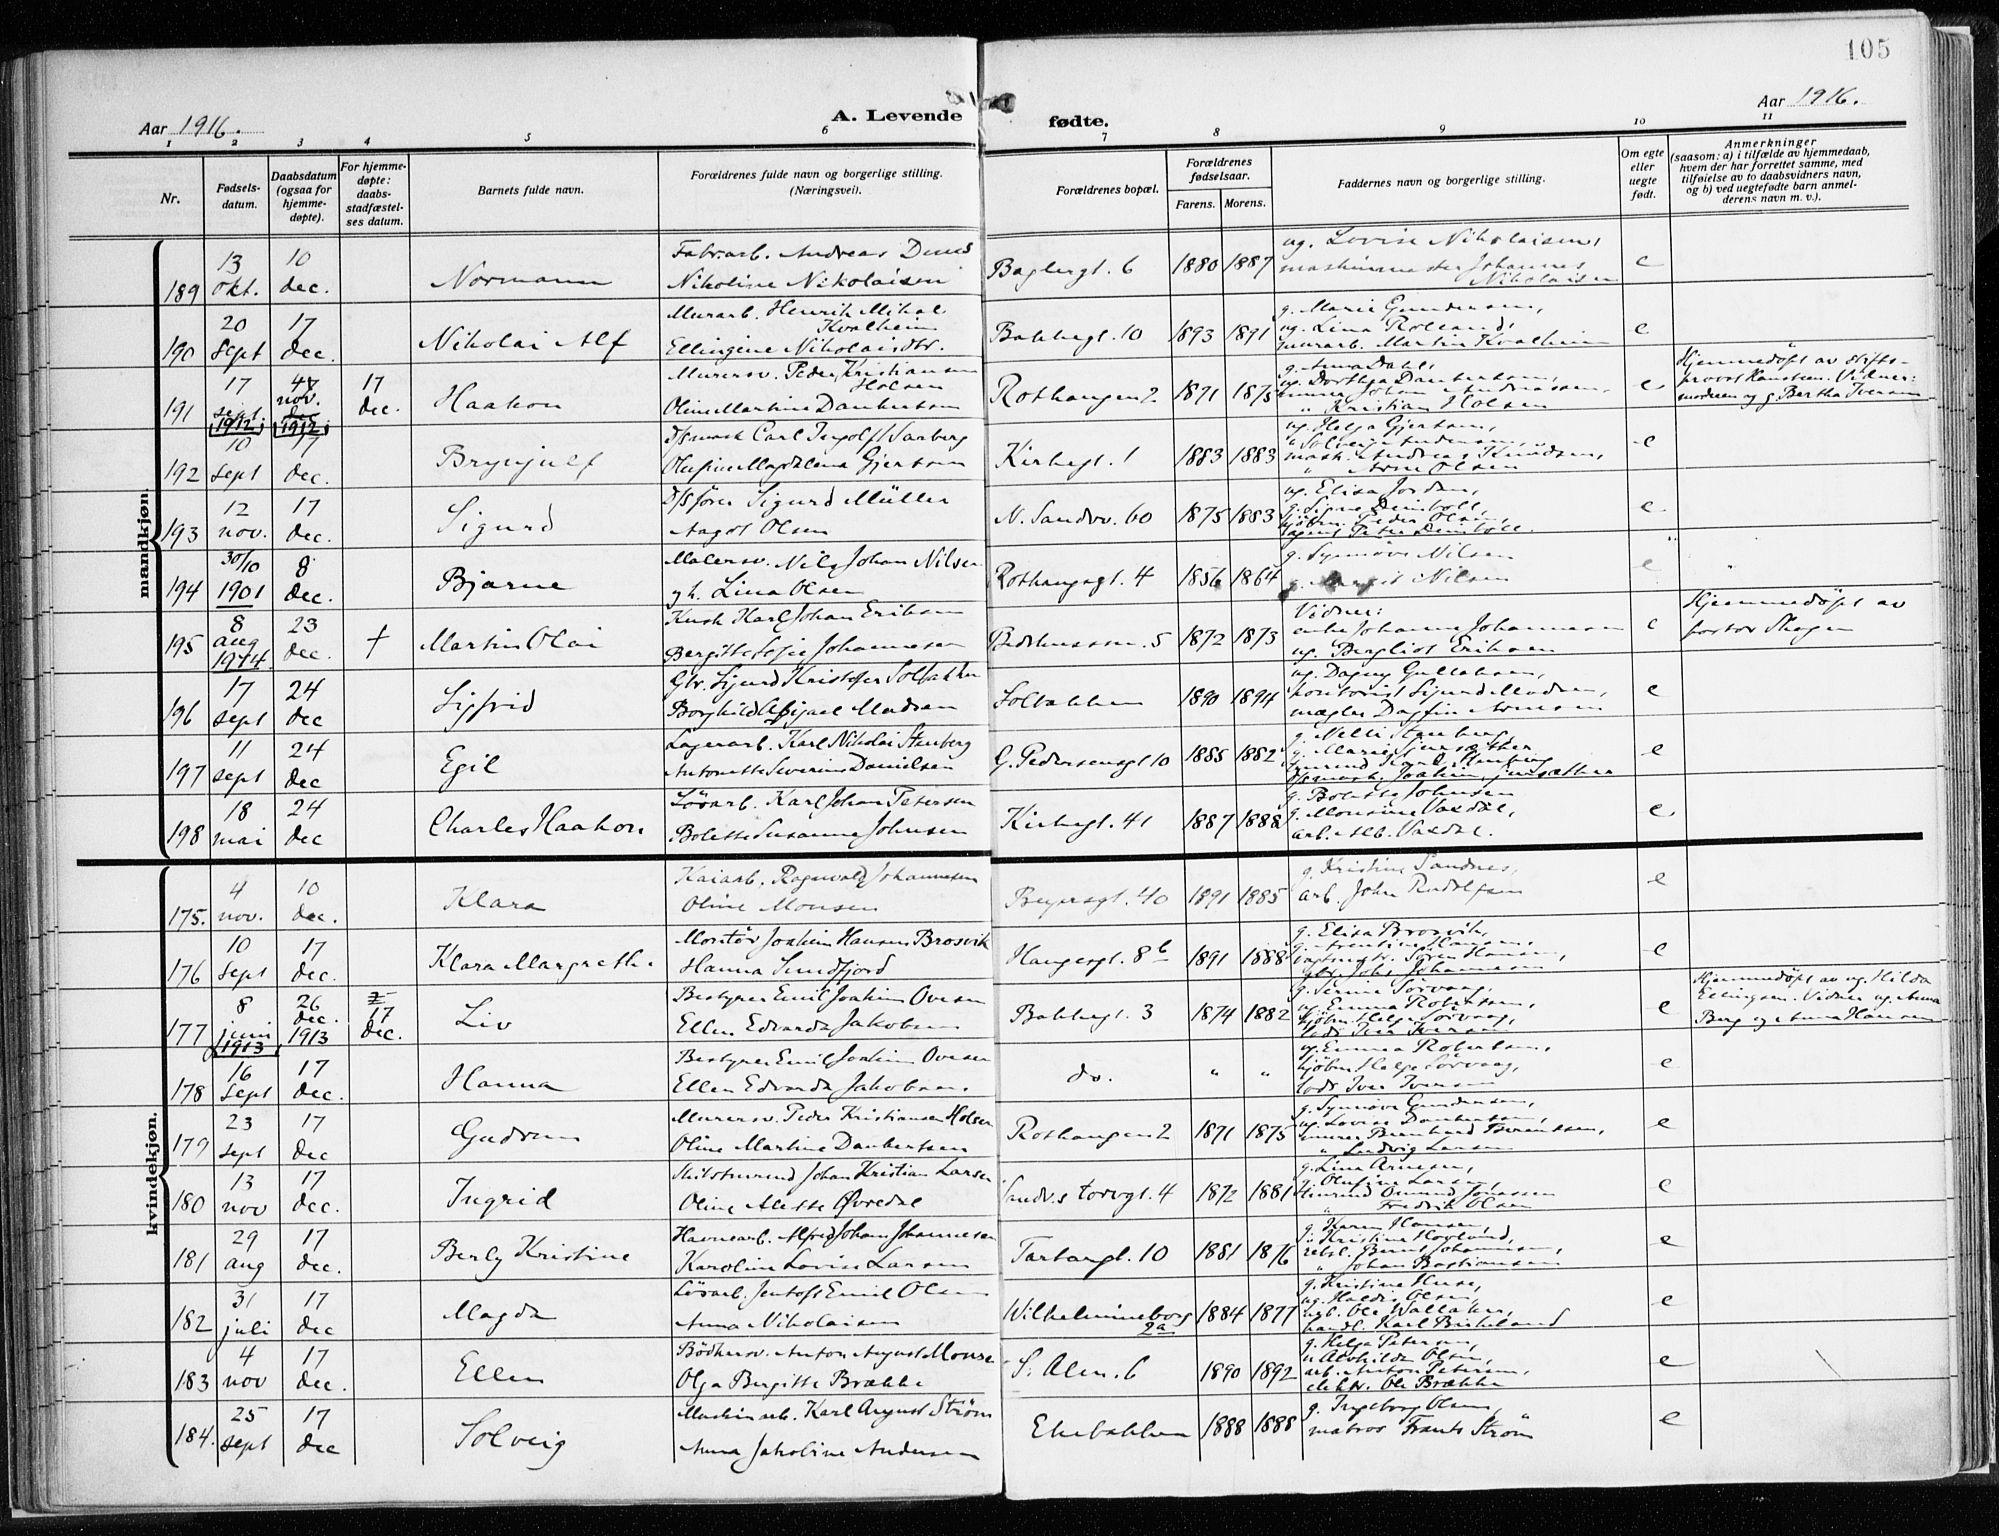 105
Aar 1916.
A. Levende
fødte.
Aar 1916.
1 2 3 4 5 6 7 8 9 10 11
Nr.
Fødsels-
datum.
Daabsdatum
(ogsaa for
hjemme-
døpte).
For hjemme-
døpte:
daabs-
stadfæstel-
ses datum.
Barnets fulde navn.
Forældrenes fulde navn og borgerlige stilling.
(Næringsvei).
Forældrenes bopæl.
Forældrenes
fødselsaar.
Farens. Morens.
Faddernes navn og borgerlige stilling.
Om egte
eller
uegte
født.
Anmerkninger
(saasom: a) i tilfælde av hjemmedaab,
hvem der har forrettet samme, med
tilføielse av to daabsvidners navn,
og b) ved uegtefødte barn anmel-
derens navn m. v.).
mandkjøn.
189 13 okt. 10 dec. Normann
Fabr.arb. Andreas
Nikoline Nikolaisen
Baglergt. 6 1880 1887
ug. Lovise Nikolaisen,
maskinmester Johannes
Nikolaisen
e
190 20 sept 17 dec. Nikolai Alf
Murarb. Henrik Mikal
Kvalheim
Ellingine Nikolaisdtr.
Bakkegt. 10 1893 1891
g. Marie Gundersen,
ug. Lina Rolland,
murarb. Martin Kvalheim
e
191 17 sept. 1912 nov. dec 1912 17 dec. Haakon
Murersv. Peder Kristiansen
Holsen
Oline Martine Daubertsen
Rothaugen 2 1871 1875
g. Anna Dahl,
ug. Dorthea Daubertsen,
murer Johan Andreassen,
" Kristian Holsen
e
Hjemmedøpt av stifts-
provst Kanuteen. Vidner:
moderen og g. Bertha Iversen
192 10 sept 17 dec. Brynjulf
D/smask Carl Ingolf Sarberg
Olufine Magdalena Gjertsen
Kirkegt. 1 1883 1883
ug. Helga Gjertsen,
" Solveig Andersen,
mask. Andreas Knudsen,
" Arne Olsen
e
193 12 nov. 17 dec. Sigurd
D/sfører Sigurd Müller
Aagot Olsen
N. Sandvv. 60 1875 1883
ug. Elisa Jordan,
g. Signe Deinboll,
kjøbm. Peder Olsen,
agent Peter Deinboll.
e
194 30/10 1901 8 dec. Bjarne
Malersv. Nils Johan Nilsen
gh. Lina Olsen
Rothaugsgt. 4 1856 1864
g. Synnøve Nilsen
g. Margit Nilsen
e
195 8 aug 1914 23 dec. † Martin Olai
Kusk Karl Johan Eriksen
Bergitte Sofie Johannesen
5 1872 1873
Vidner:
enke Johanne Johannesen
ug. Bergliot Eriksen
e
Hjemmedøpt av
pastor Skagen
196 17 sept 24 dec Sigfrid
Gbr. Sigurd Kristofer Solbakken
Borghild Abigael Madsen
Solbakken 1890 1894
ug. Dagny Gullaksen,
kontorist Sigurd Madsen,
mægler Dagfin Arnesen
e
197 11 sept 24 dec Egil
Lagerarb. Karl Nikolai Stenberg
Antonette Severine Danielsen
G. Pedersensgt 10 1885 1882
g. Nelli Stenberg,
g. Marie Gjersæther
Karl Stenberg
D/smask. Joakim Gjersæther
e
198 18 mai 24 dec Charles Haakon
Løsarb. Karl Johan Petersen
Bolette Susanne Johnsen
Kirkegt. 41 1887 1888
g. Bolette Johnsen
g. Monsine Vaxdal,
arb. Alb. Vaxdal.
e
kvindekjøn.
175. 4 nov. 10 dec. Klara
Kaiarb. Ragnvald Johannesen
Oline Monsen
Beyersgt. 40 1891 1885
g. Kristine Sandnes,
arb. John Rudolfsen
e
176 10 sept 17 dec. Klara Margrethe
Montør Joakim Hansen Brosvik
Hanna Sundfjord
Haugesgt. 8b 1891 1888
g. Elisa Brosvik,
g. Arentine Hansen,
vagtmstr. Søren Hansen,
Johs Johannesen
e
177 8 juni 1913 26 dec. 1913 17 dec. Liv
Bestyrer Emil Joakim Ovesen
Ellen Edvarda Jakobsen
Bakkegt. 3 1874 1882
g. Serine Sørvaag,
ug. Emma Robertsen,
kjøbm. Helge Sørvaag,
lods Iver Iversen
e
Hjemmedøpt av ug. Hilda
Ellingsen. Vidner ug. Anna
Berg og Anna Hansen
178 16 sept 17 dec. Hanna
Bestyrer Emil Joakim Ovesen
Ellen Edvarda Jakobsen
do. " "
ug. Emma Robertsen,
kjøbm Helge Sørvaag,
lods Iver Iversen
e
179 23 sept 17 dec Gudrun
Murersv. Peder Kristiansen Holsen
Oline Martine Daubertsen
Rothaugen 2 1871 1875
g. Synnøve Gundersen,
ug. Lovise Daubertsen,
murer Bernhard Berentsen,
" Ludvig Larsen
e
180 13 nov 17 dec. Ingrid
Johan Kristian Larsen
Oline Alette Øvredal
Sandv.s torvgt. 4 1872 1881
g. Lina Arnesen,
g. Olufine Larsen,
Omund Jonassen
" Fredrik Olsen
e
181 29 aug 17 dec. Berly Kristine
Havnearb. Alfred Johan Johannesen
Karoline Lovise Larsen
Tartargt. 10 1881 1876
g. Karen Hansen,
" Kristine Hovland,
rebsl. Bernt Johannesen,
" Johan Bastiansen
e
182 31 juli 17 dec Magda
Løsarb. Jentoft Emil Olsen
Anna Nikolaisen
Wilhelmineborg
2a 1884 1877
g. Kristine Huse,
ug. Haldis Olsen,
arb. Ole Wallaker,
handl. Karl Birkeland
e
183 4 nov 17 dec. Ellen
Bødkersv. Anton August Monsen
Olga Bergitte Brække
S. Alm. 6 1890 1892
g. Helga Petersen,
" Alvhilda Olsen,
arb. Anton Petersen,
elektr. Ole Brække
e
184. 25 sept 17 dec Solveig
Maskinarb. Karl August Strøm
Anna Jakobine Andersen
Ekebakken 1888 1888
g. Ingeborg Olsen,
matros Frants Strøm
e